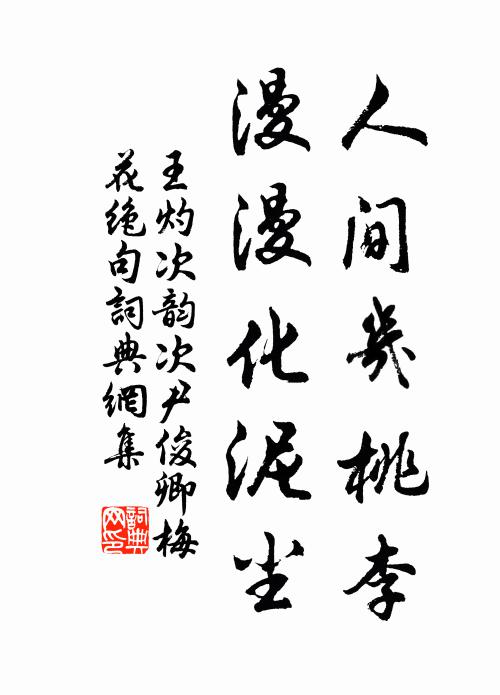 人间几桃李
漫漫化泥尘
王灼次韵次尹俊卿梅
花绝句詞典網集
詞典网印